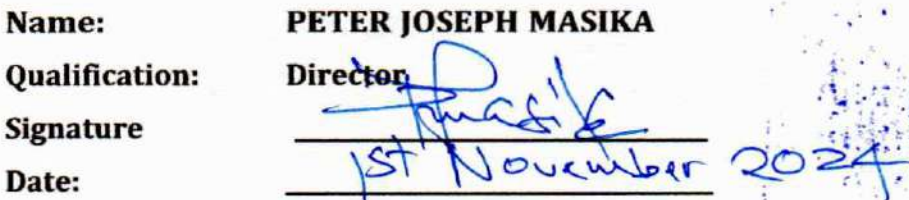 Name: PETER JOSEPH MASIKA
Qualification: Director
Signature PJMasika
Date: 1st November 2024